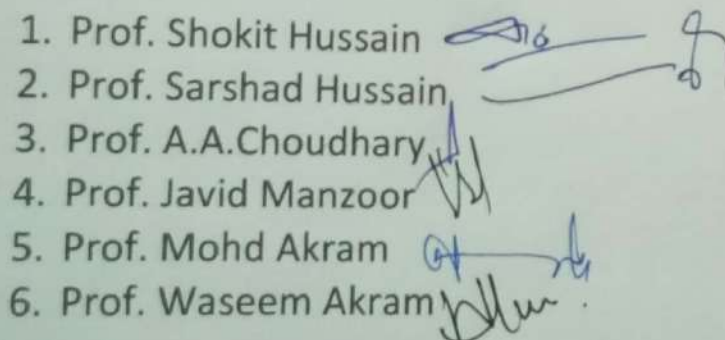 1. Prof. Shokit Hussain
2. Prof. Sarshad Hussain
3. Prof. A.A.Choudhary
4. Prof. Javid Manzoor
5. Prof. Mohd Akram
6. Prof. Waseem Akram